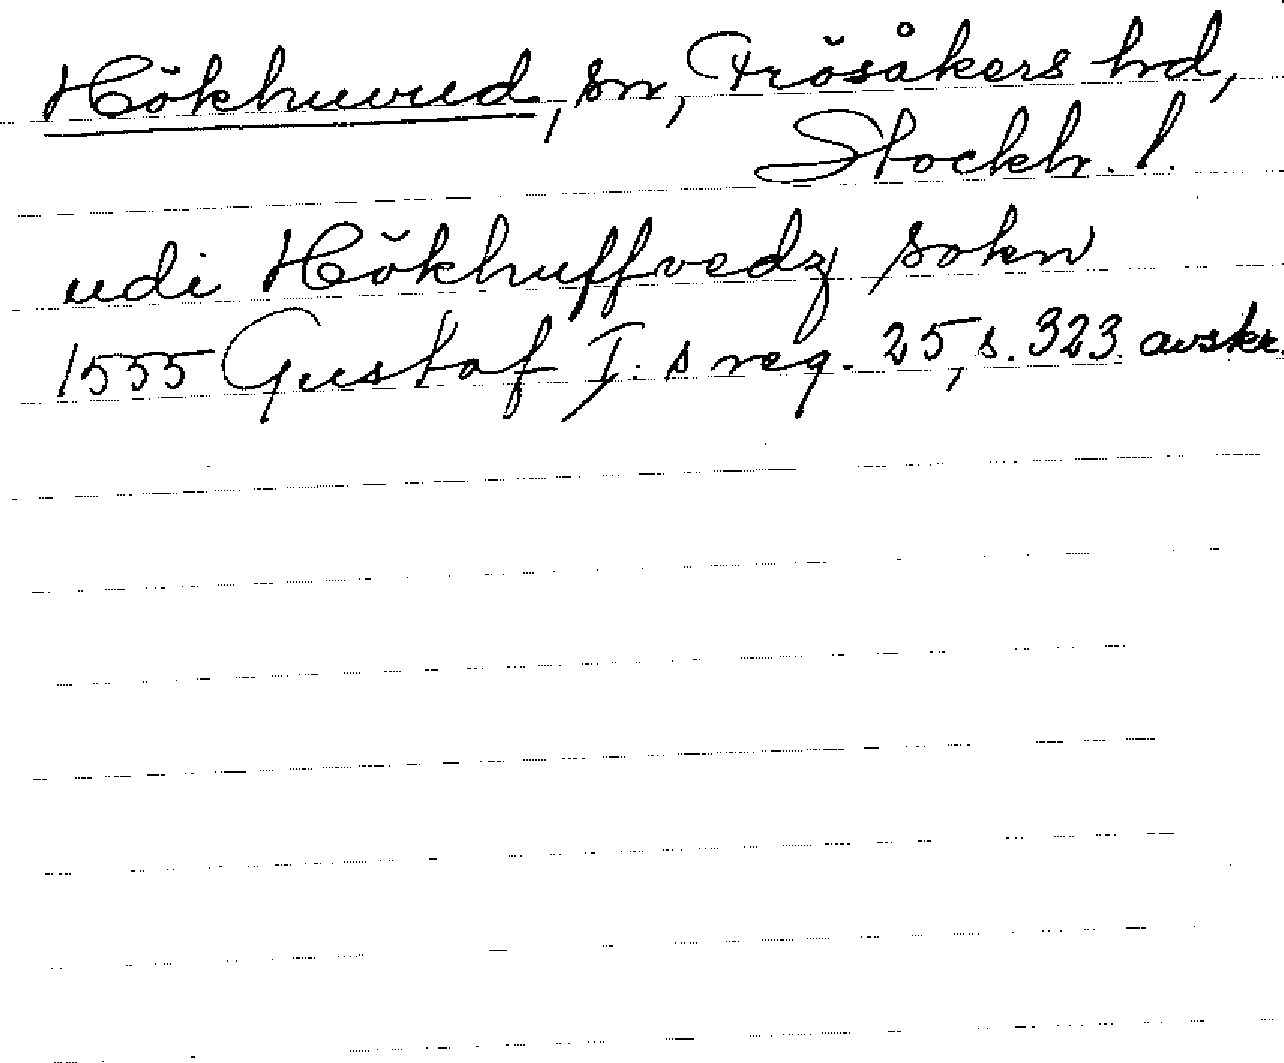 Hökhuvud, sn, Frösåkers hrd,
Stockh. l.
udi Hökhuffvedz sokn
1555 Gustaf I:s reg. 25, s. 323 avskr.